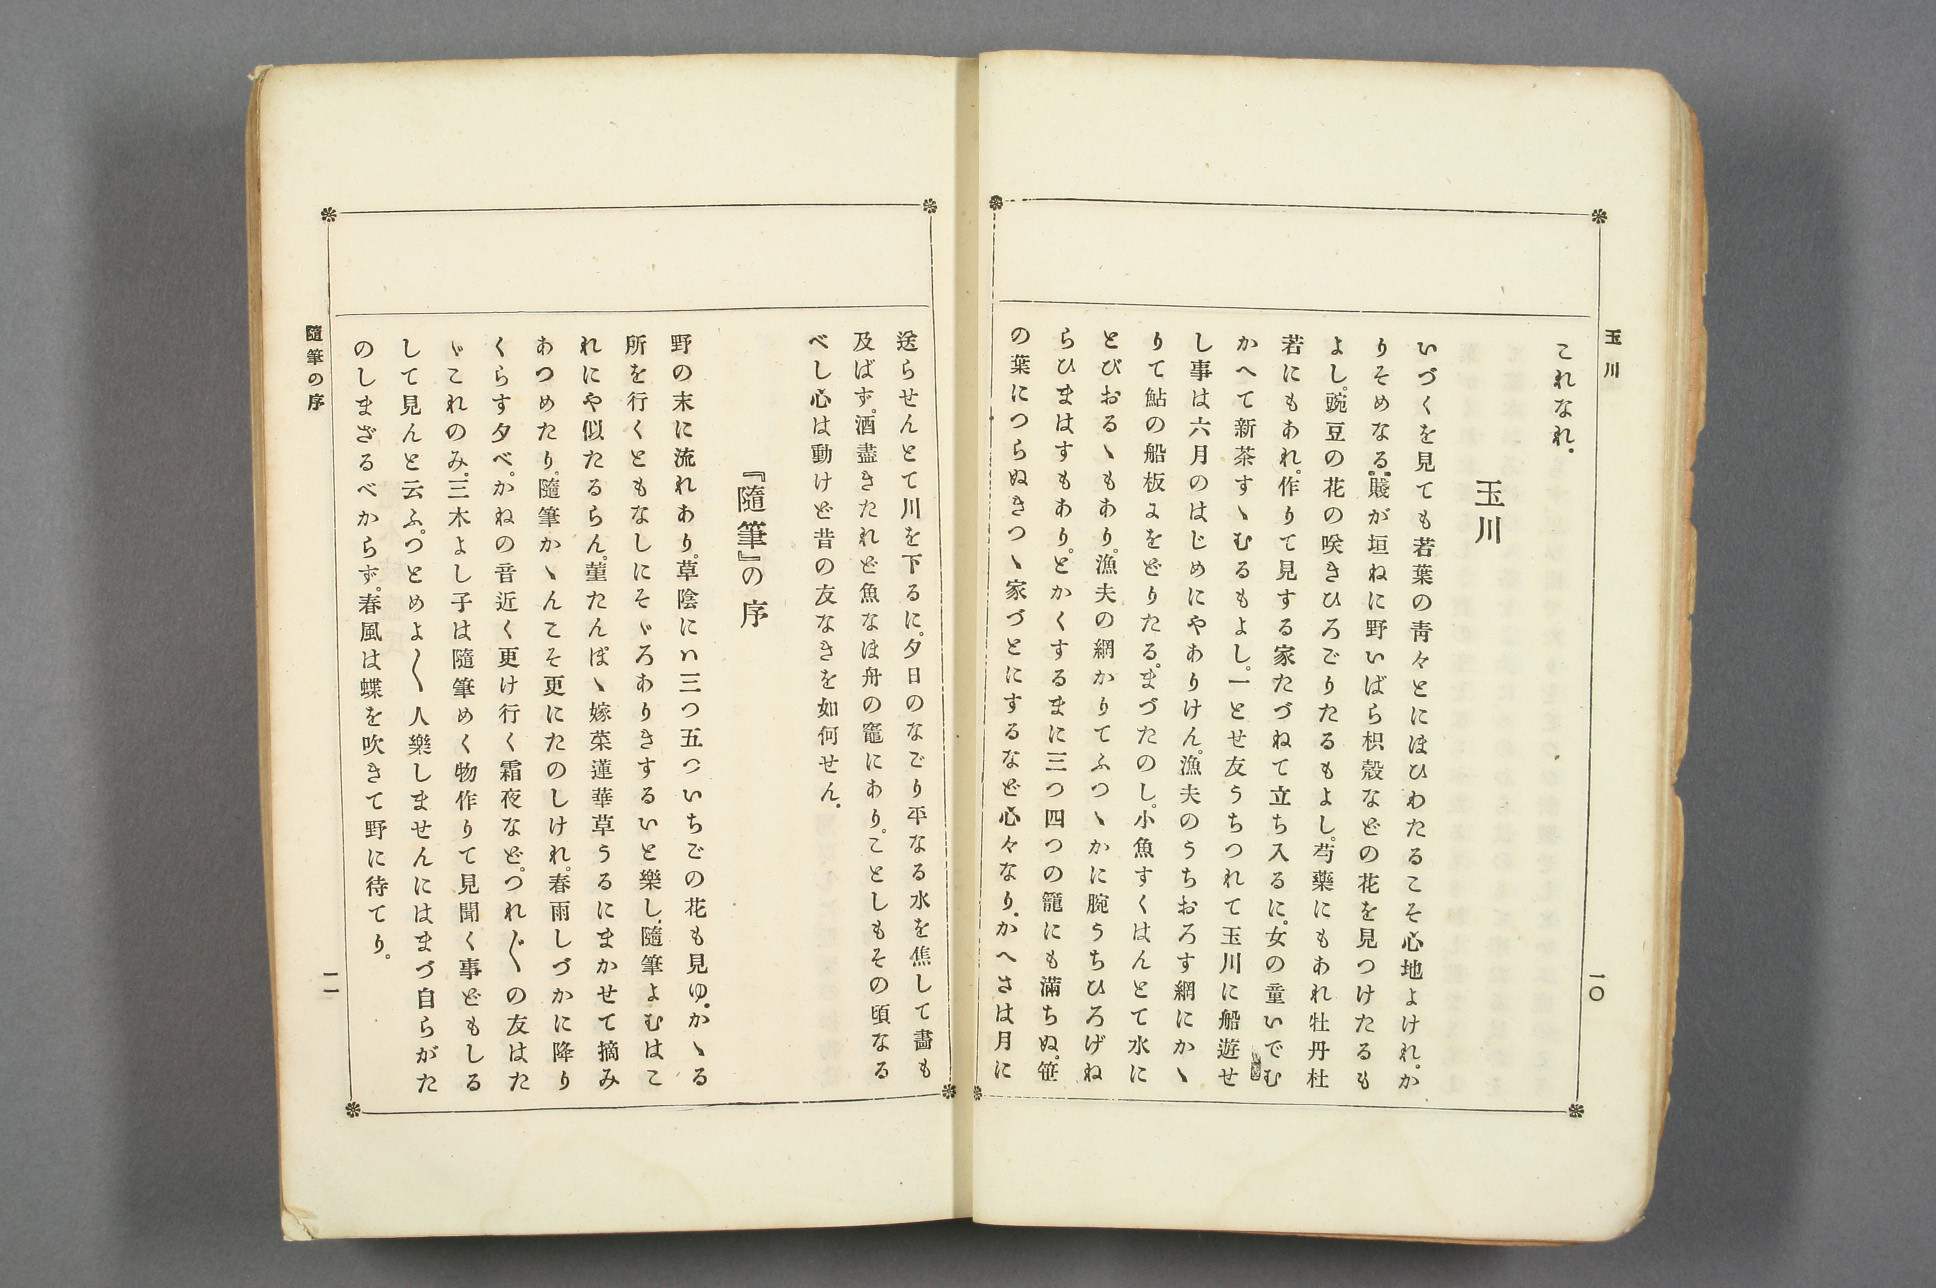 玉川
一〇
これなれ.
玉川
いづくを見ても若葉の靑々とにほひわたるこそ心地よけれ。か
りそめなる。賤が垣ねに野いばら枳殼などの花を見つけたるも
よし。豌豆の花の咲きひろごりたるもよし。芍藥にもあれ牡丹杜
若にもあれ。作りて見する家たづねて立ち入るに。女の童いでむ
かへて新茶すゝむるもよし。一とせ友うちつれて玉川に船遊せ
し事は六月のはじめにやありけん。漁夫のうちおろす網にかゝ
りて鮎の船板よをどりたる。まづたのし。小魚すくはんとて水に
とびおるゝもあり。漁夫の網かりてふつゝかに腕うちひろげね
らひまはすもあり。とかくするまに三つ四つの籠にも滿ちぬ。笹
の葉につらぬきつゝ家づとにするなど心々なり.かへさは月に
送らせんとて川を下るに。夕日のなごり平なる水を焦して畵も
及ばず。酒盡きたれど魚なほ舟の竈にあり。ことしもその頃なる
べし心は動けど昔の友なきを如何せん.
『隨筆』の序
野の末に流れあり。草陰にハ三つ五ついちごの花も見ゆ.かゝる
所を行くともなしにそゞろありきするいと樂し.隨筆よむはこ
れにや似たるらん。菫たんぽゝ嫁菜蓮華草うるにまかせて摘み
あつめたり。隨筆かゝんこそ更にたのしけれ。春雨しづかに降り
くらす夕べ。かねの音近く更け行く霜夜など。つれ〴〵の友はた
ゞこれのみ。三木よし子は隨筆めく物作りて見聞く事どもしる
して見んと云ふ。つとめよ〳〵人樂しませんにはまづ自らがた
のしまざるべからず。春風は蝶を吹きて野に待てり。
隨筆の序
一一